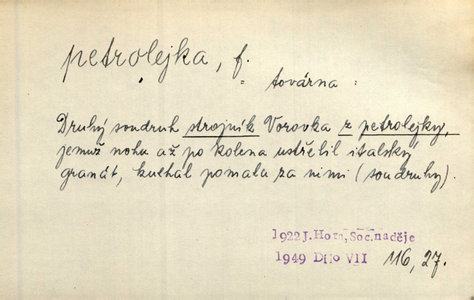 petrolejka, f.
továrna :
Druhý soudruh strojník Vorovka z petrolejky,
jemuž nohu až po kolena ustřelil italský
granát, kulhal pomalu za nimi (soudruhy).
1922 J. Hora, Soc. naděje
1949 Dílo VII 116, 27.